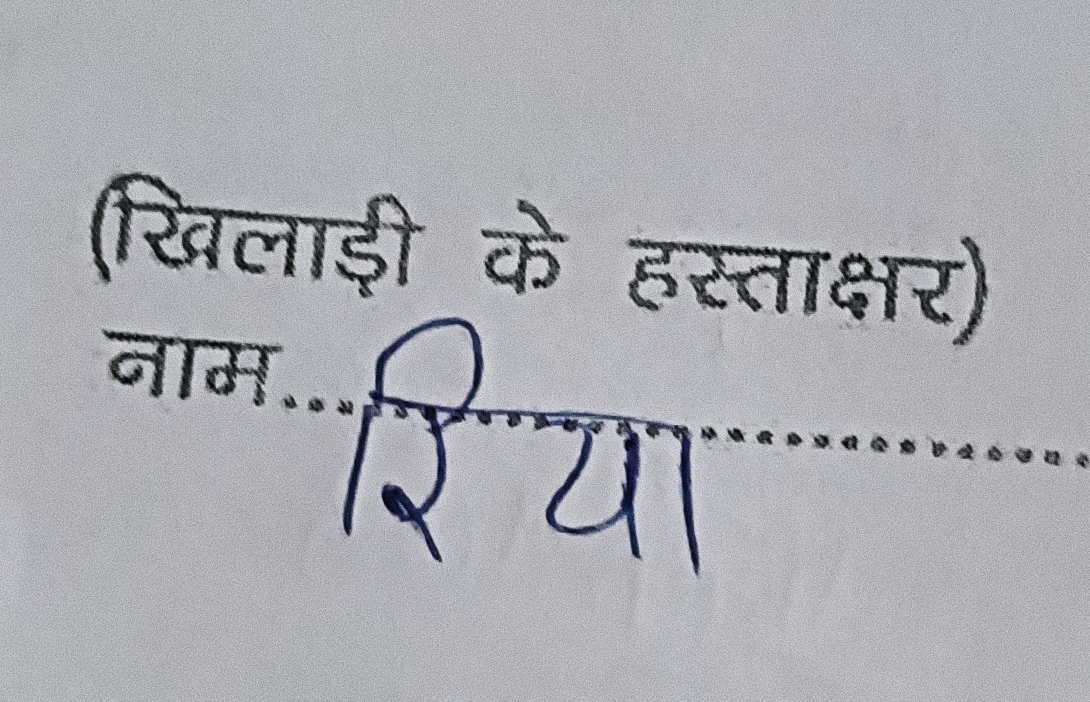 (खिलाड़ी के हस्ताक्षर)
नाम.......रिया.......